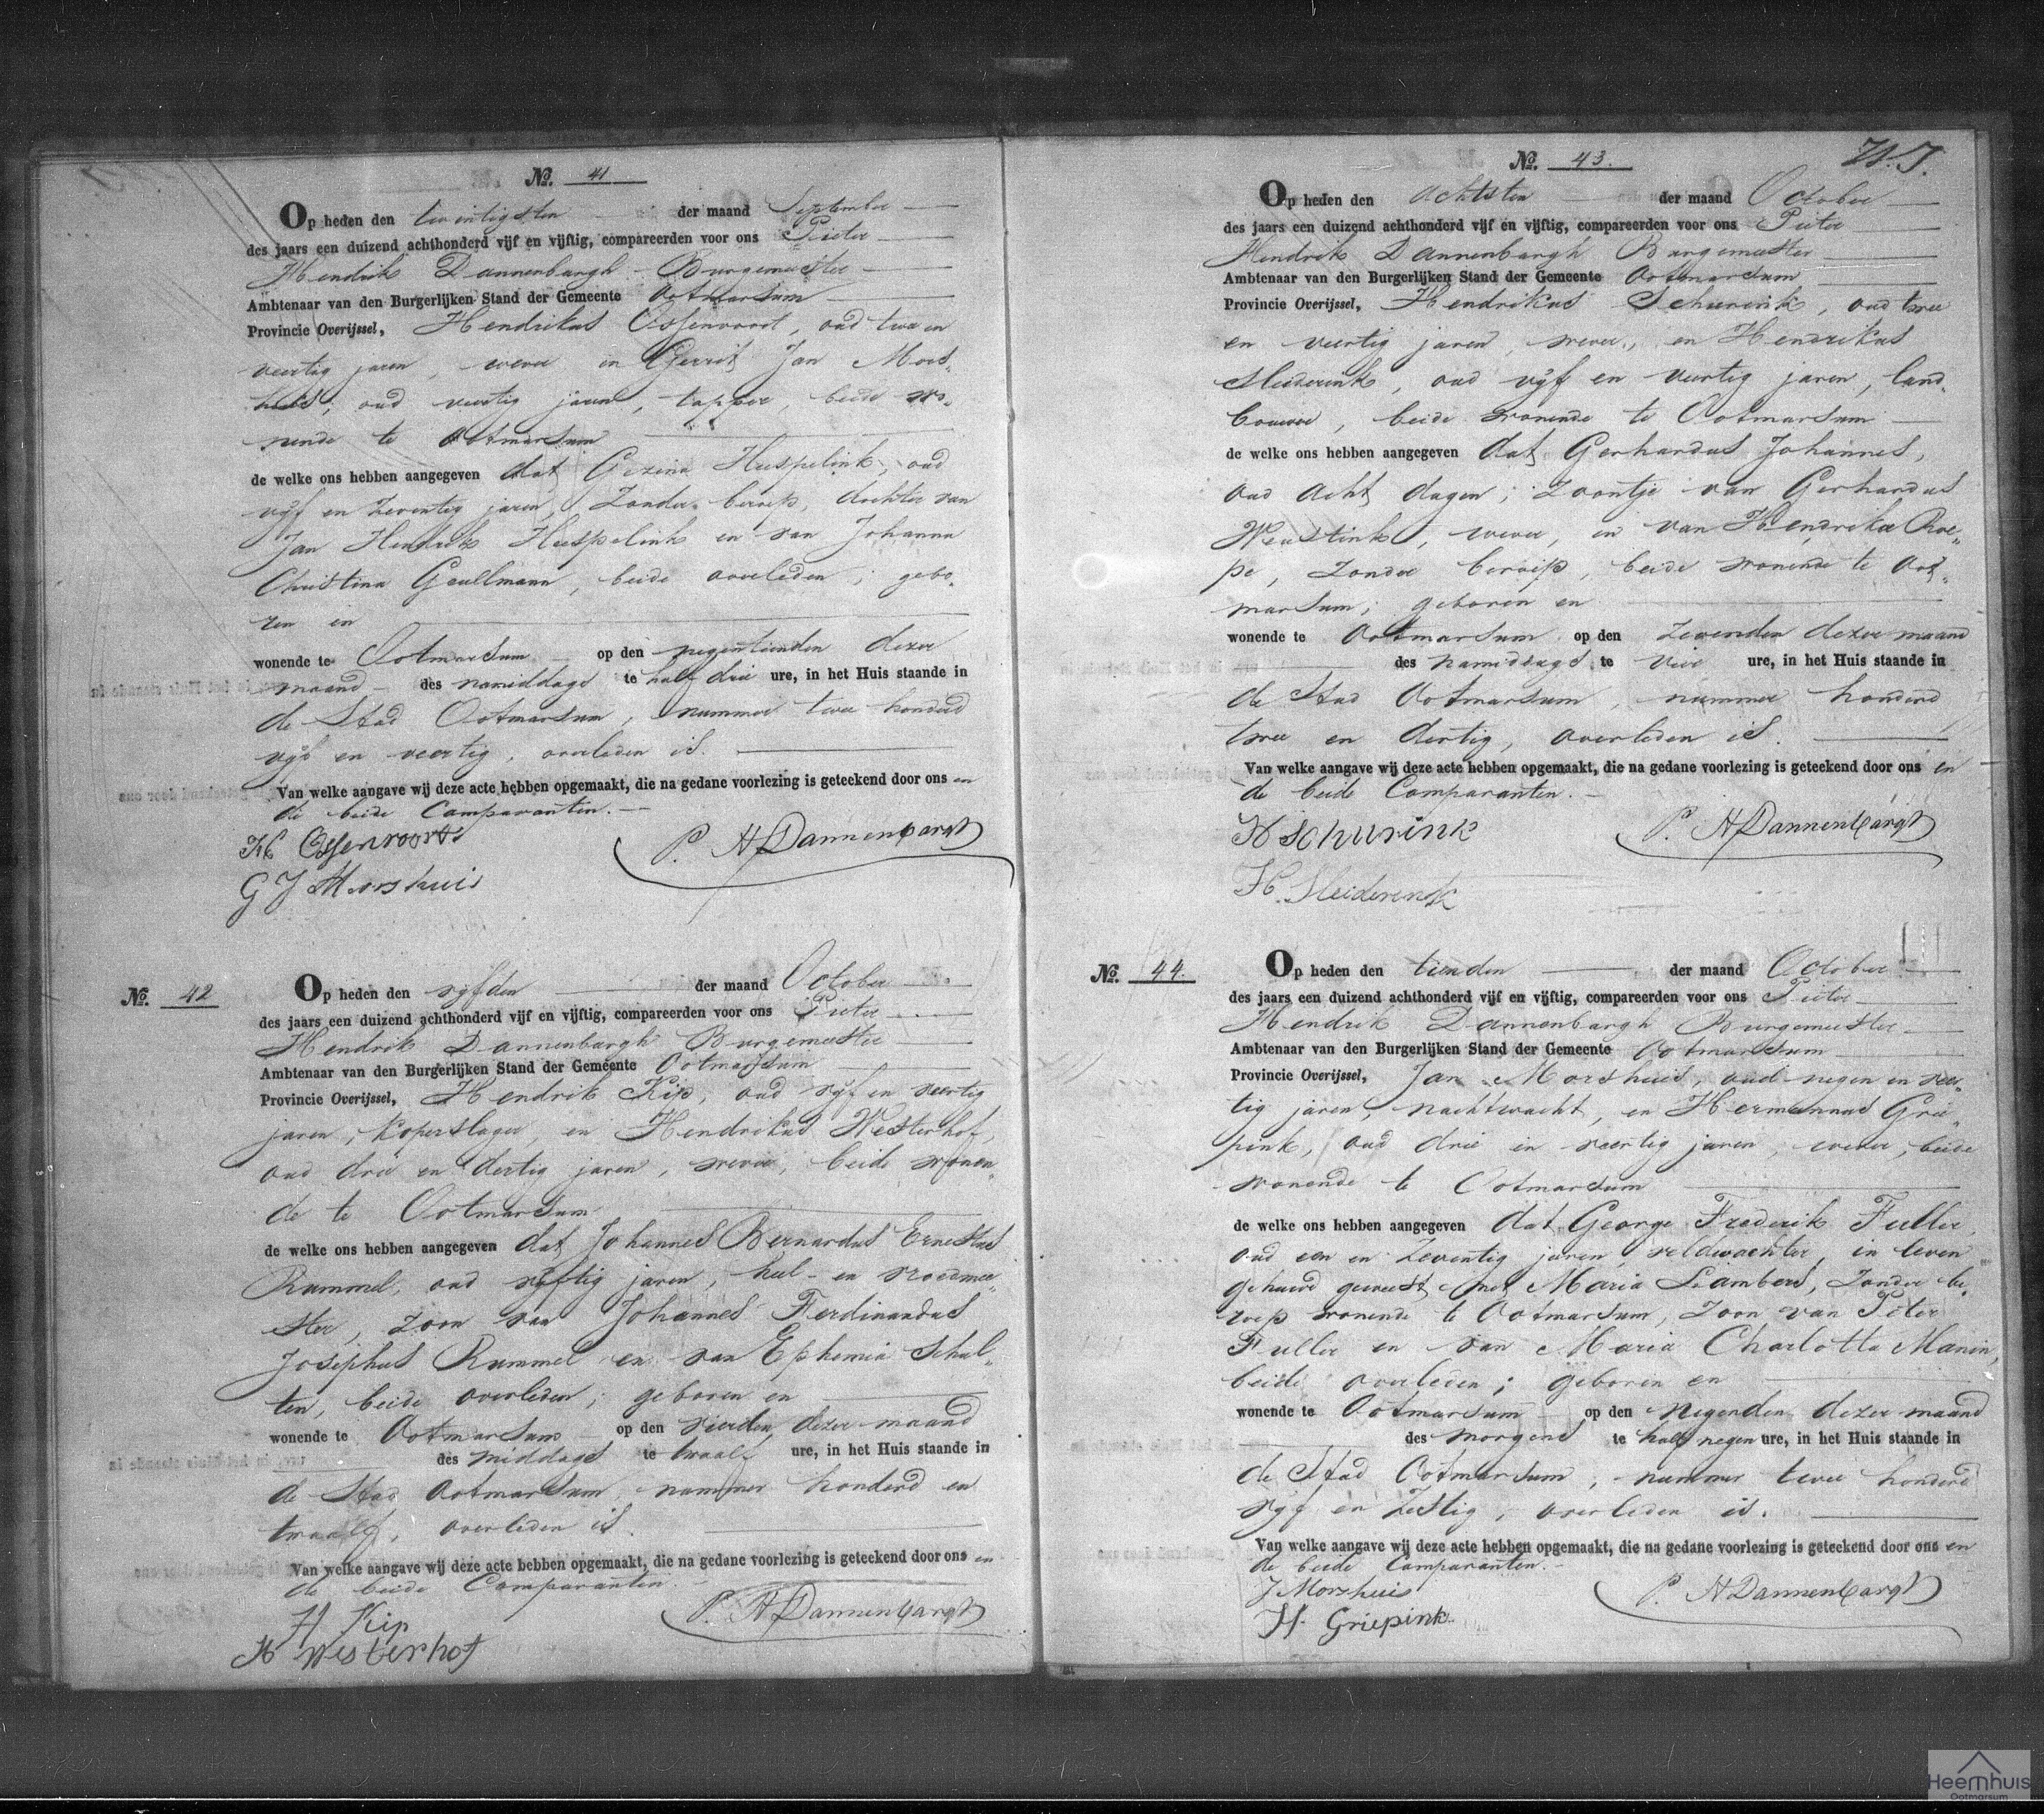 No. 41
Op heden den twintigsten der maand September
des jaars een duizend achthonderd vijf en vijftig, compareerden voor ons Pieter
Hendrik Dannenbargh Burgemeester
Ambtenaar van den Burgerlijken Stand der Gemeente Ootmarsum
Provincie Overijssel, Hendrikus Ossenvoort, oud twee en
veertig jaren, wever en Gerrit Jan Mors-
huis, oud veertig jaren, tapper, beide wo-
nende te Ootmarsum
de welke ons hebben aangegeven dat Gezina Huspelink, oud
vijf en zeventig jaren, zonder beroep, dochter van
Jan Hendrik Huspelink en van Johanna
Christina Geullmann, beide overleden; gebo-
ren en
wonende te Ootmarsum op den negentienden dezer
maand des namiddags te half drie ure, in het Huis staande in
de Stad Ootmarsum, nummer twee honderd
vijf en veertig, overleden is.
Van welke aangave wij deze acte hebben opgemaakt, die na gedane voorlezing is geteekend door ons en
de beide Comparanten.
H Ossenvoort
P. H Dannenbargh
G J Morshuis
No. 42
Op heden den vijfden der maand October
des jaars een duizend achthonderd vijf en vijftig, compareerden voor ons Pieter
Hendrik Dannenbargh Burgemeester
Ambtenaar van den Burgerlijken Stand der Gemeente Ootmarsum
Provincie Overijssel, Hendrik Kip, oud vijf en veertig
jaren, koperslager, en Hendrikus Westerhof,
oud drie en dertig jaren, wever, beide wonen-
de te Ootmarsum
de welke ons hebben aangegeven dat Johannes Bernardus Ernestus
Rummel, oud vijftig jaren, heel- en vroedmee-
ster, zoon van Johannes Ferdinandus
Josephus Rummel en van Ephemia Schul-
ten, beide overleden; geboren en
wonende te Ootmarsum op den vierden dezer maand
des middags te twaalf ure, in het Huis staande in
de Stad Ootmarsum, nummer honderd en
twaalf, overleden is.
Van welke aangave wij deze acte hebben opgemaakt, die na gedane voorlezing is geteekend door ons en
de beide Comparanten.
H Kip
P. H Dannenbargh
H Westerhof
No. 43.
Op heden den achtsten der maand October
des jaars een duizend achthonderd vijf en vijftig, compareerden voor ons Pieter
Hendrik Dannenbargh Burgemeester
Ambtenaar van den Burgerlijken Stand der Gemeente Ootmarsum
Provincie Overijssel, Hendrikus Schurink, oud twee
en veertig jaren, wever, en Hendrikus
Sleiderink, oud vijf en veertig jaren, land-
bouwer, beide wonende te Ootmarsum
de welke ons hebben aangegeven dat Gerhardus Johannes,
oud acht dagen; zoontje van Gerhardus
Weustink, wever, en van Hendrika Roe-
pe, zonder beroep, beide wonende te Oot-
marsum; geboren en
wonende te Ootmarsum op den zevenden dezer maand
des namiddags te vier ure, in het Huis staande in
de Stad Ootmarsum, nummer honderd
twee en dertig, overleden is.
Van welke aangave wij deze acte hebben opgemaakt, die na gedane voorlezing is geteekend door ons en
de beide Comparanten.
H Schurink
P. H Dannenbargh
H. Sleiderink
No. 44.
Op heden den tienden der maand October
des jaars een duizend achthonderd vijf en vijftig, compareerden voor ons Pieter
Hendrik Dannenbargh Burgemeester
Ambtenaar van den Burgerlijken Stand der Gemeente Ootmarsum
Provincie Overijssel, Jan Morshuis, oud negen en veer-
tig jaren, nachtwacht, en Hermannus Grie-
pink, oud drie en veertig jaren, wever, beide
wonende te Ootmarsum
de welke ons hebben aangegeven dat George Frederik Fuller,
oud een en zeventig jaren, veldwachter, in leven
gehuwd geweest met Maria Lambers, zonder be-
roep wonende te Ootmarsum, zoon van Peter
Fuller en van Maria Charlotta Manin,
beide overleden; geboren en
wonende te Ootmarsum op den negenden dezer maand
des morgens te half negen ure, in het Huis staande in
de Stad Ootmarsum, nummer twee honderd
vijf en zestig, overleden is.
Van welke aangave wij deze acte hebben opgemaakt, die na gedane voorlezing is geteekend door ons en
de beide Comparanten.
J Morshuis
P. H Dannenbargh
H. Griepink
Heemhuis
Ootmarsum